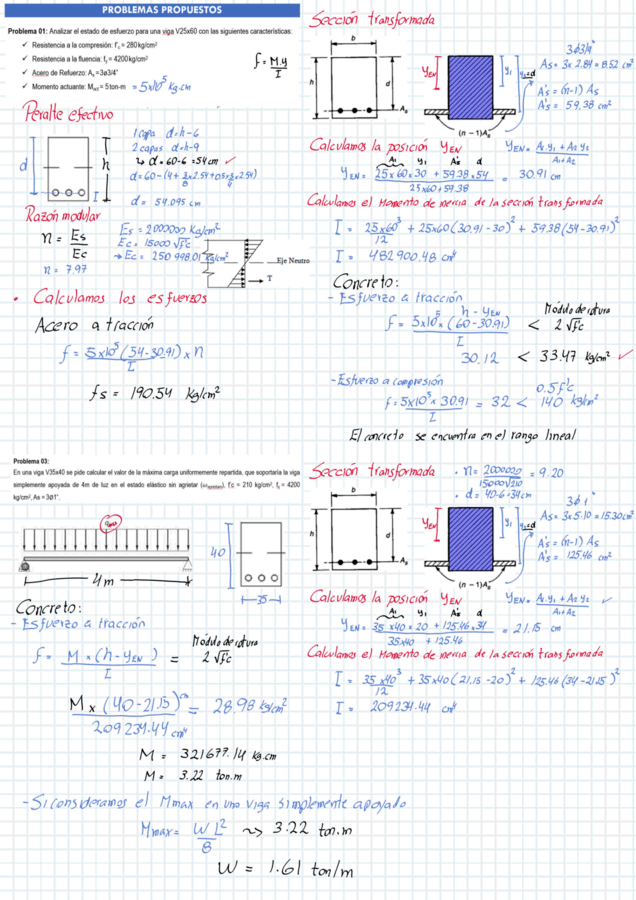 PROBLEMAS PROPUESTOS
Problema 01: Analizar el estado de esfuerzo para una viga V25x60 con las siguientes características:
✓ Resistencia a la compresión: f'c = 280kg/cm²
✓ Resistencia a la fluencia: fy = 4200kg/cm²
✓ Acero de Refuerzo: As =3ø3/4"
✓ Momento actuante: Mact = 5 ton-m = 5x10⁵ kg.cm
f = M.y / I
Peralte efectivo
d
h
I
1 capa d=h-6
2 capas d=h-9
↳ d = 60-6 = 54cm ✓
d = 54.095 cm
Razón modular
n = Es / Ec
n = 7.97
Es = 2000000 Kg/cm²
Ec = 15000 √f'c
→ Ec = 250 998.01 kg/cm²
Eje Neutro
T
• Calculamos los esfuerzos
Acero a tracción
f = 5x10⁵ (54-30.91) x n / I
fs = 190.54 Kg/cm²
Sección transformada
b
h
d
As
yEN
y1
y2=d
(n −1)As
3ø3/4"
As = 3x 2.84 = 8.52 cm²
A's = (n-1) As
A's = 59.38 cm²
Calculamos la posición yEN
yEN = A1 y1 + A2 y2 / A1 + A2
A1 y1 A's d
yEN = 25x60x30 + 59.38x54 / 25x60+59.38 = 30.91 cm
Calculamos el Momento de inercia de la sección transformada
I = 25x60³/12 + 25x60(30.91-30)² + 59.38(54-30.91)²
I = 482900.48 cm⁴
Concreto:
- Esfuerzo a tracción
h - yEN
Módulo de rotura
f = 5x10⁵ x (60-30.91) / I < 2 √f'c
30.12 < 33.47 kg/cm² ✓
- Esfuerzo a compresión
0.5f'c
f = 5x10⁵ x 30.91 / I = 32 < 140 kg/cm²
El concreto se encuentra en el rango lineal
Problema 03:
En una viga V35x40 se pide calcular el valor de la máxima carga uniformemente repartida, que soportaría la viga
simplemente apoyada de 4m de luz en el estado elástico sin agrietar f'c = 210 kg/cm², fy = 4200
kg/cm², As = 3Ø1".
4m
40
35
Concreto:
- Esfuerzo a tracción
Módulo de rotura
f = M x (h - yEN) / I = 2 √f'c
M x (40-21.15) cm / 209234.44 cm⁴ = 28.98 kg/cm²
M = 321677.14 kg.cm
M = 3.22 ton.m
- Si consideramos el Mmax en una viga simplemente apoyado
Mmax = WL²/8 ~> 3.22 ton.m
W = 1.61 ton/m
Sección transformada
• n = 2000000 / 15000√210 = 9.20
• d = 40-6 = 34cm
b
h
d
As
yEN
y1
y2=d
(n −1)As
3ø1"
As = 3x5.10 = 15.30cm²
A's = (n-1) As
A's = 125.46 cm²
Calculamos la posición yEN
yEN = A1 y1 + A2 y2 / A1 + A2 ✓
A1 y1 A's d
yEN = 35x40x20 + 125.46x34 / 35x40 + 125.46 = 21.15 cm
Calculamos el Momento de inercia de la sección transformada
I = 35x40³/12 + 35x40(21.15-20)² + 125.46(34-21.15)²
I = 209234.44 cm⁴